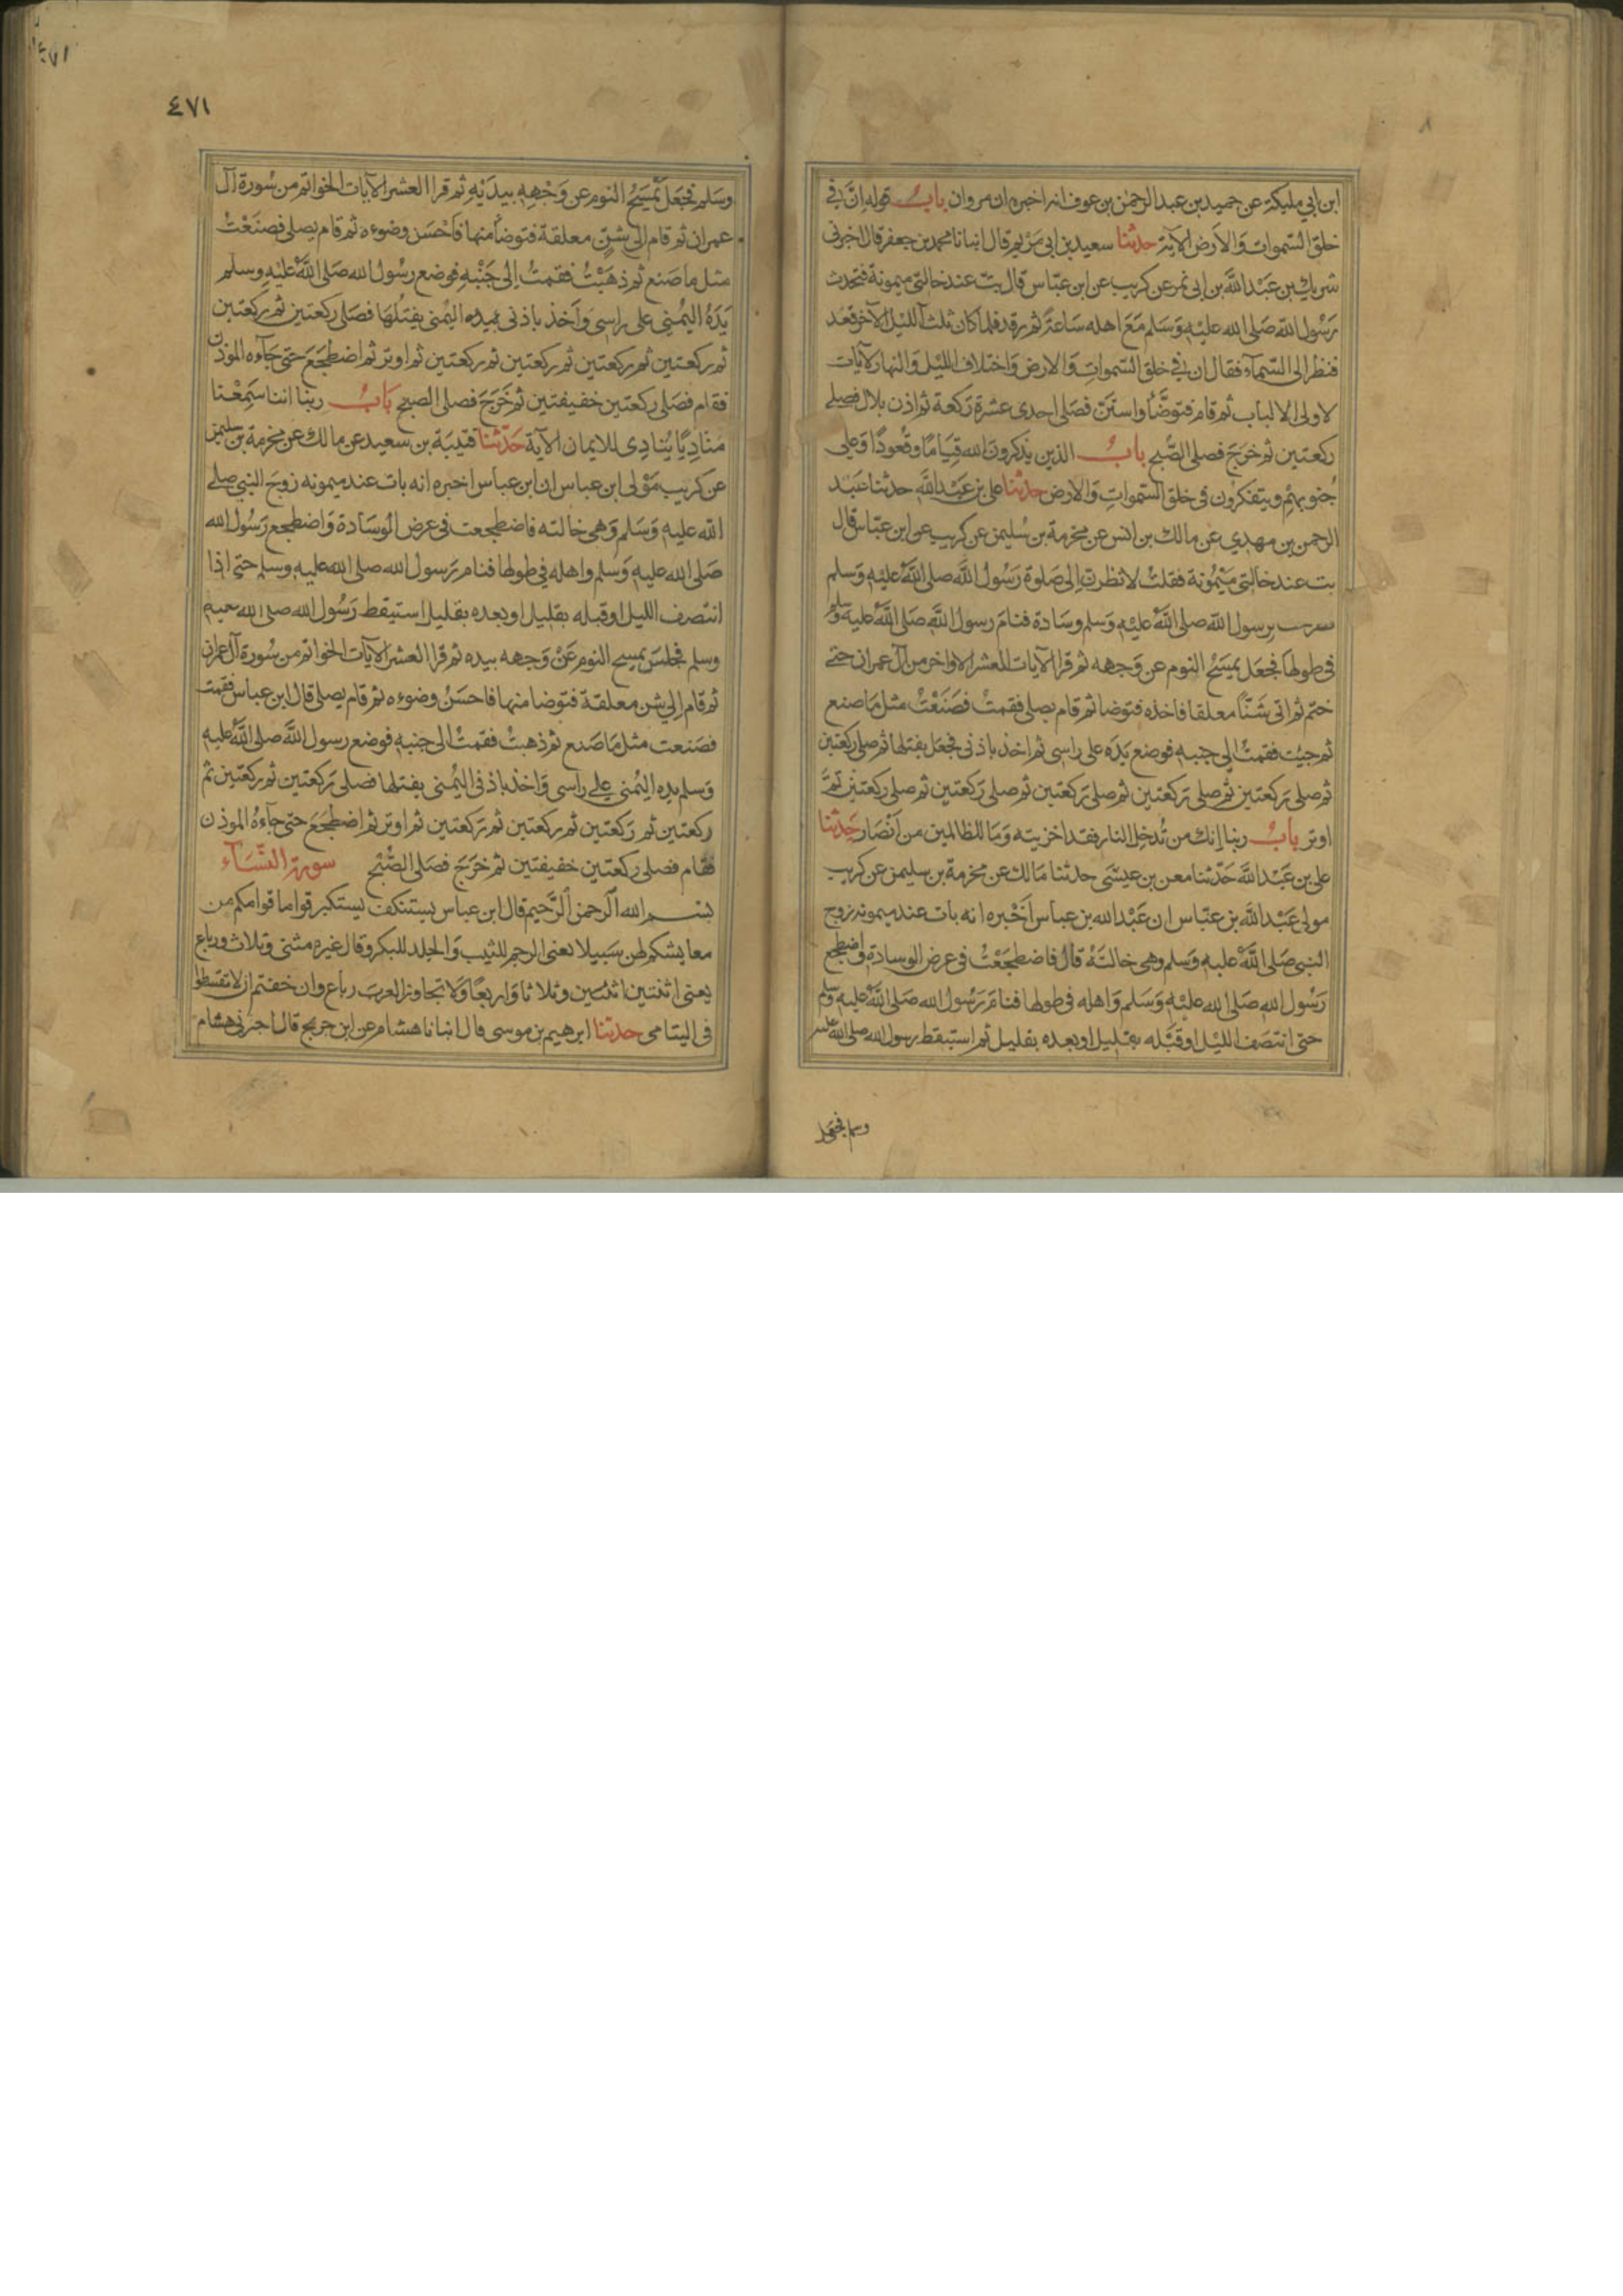 ابن ابي مليكة عن حميد بن عبد الرحمن بن عوف انه اخبره ان مروان باب قوله ان في
خلق السموات والارض الآية حدثنا سعيد بن ابي مريم قال انبانا محمد بن جعفر قال اخبرني
شريك بن عبد الله بن ابي نمر عن كريب عن ابن عباس قال بت عند خالتي ميمونة فتحدث
رسول الله صلى الله عليه وسلم مع اهله ساعة ثم رقد فلما كان ثلث الليل الآخر قعد
فنظر الى السماء فقال ان في خلق السموات والارض واختلاف الليل والنهار لآيات
لاولى الالباب ثم قام فتوضأ واستن فصلى احدى عشرة ركعة ثم اذن بلال فصلى
ركعتين ثم خرج فصلى الصبح باب الذين يذكرون الله قياما وقعودا وعلى
جنوبهم ويتفكرون في خلق السموات والارض حدثنا على بن عبد الله حدثنا عبد
الرحمن بن مهدي عن مالك بن انس عن مخرمة بن سليمن عن كريب عن ابن عباس قال
بت عند خالتي ميمونة فقلت لانظرن إلى صلوة رسول الله صلى الله عليه وسلم
لرسول الله صلى الله عليه وسلم وسادة فنام رسول الله صلى الله عليه وسلم
في طولها فجعل يمسح النوم عن وجهه ثم قرا الآيات العشر الاواخر من آل عمران حتى
ختم ثم اتى شنا معلقا فاخذه فتوضا ثم قام يصلى فقمت فصنعت مثل ما صنع
ثم جيت فقمت إلى جنبه فوضع يده على راسى ثم اخذ باذنى فجعل يفتلها ثم صلى ركعتين
ثم صلى ركعتين ثم صلى ركعتين ثم صلى ركعتين ثم صلى ركعتين ثم صلى ركعتين ثم
اوتر باب ربنا إنك من تدخل النار فقد اخزيته وما للظالمين من انصار حدثنا
على بن عبد الله حدثنا معن بن عيسى حدثنا مالك عن مخرمة بن سليمن عن كريب
مولى عبد الله بن عباس ان عبد الله بن عباس اخبره انه بات عند ميمونه زوج
النبي صلى الله عليه وسلم وهى خالته قال فاضطجعت في عرض الوسادة واضطجع
رسول الله صلى الله عليه وسلم واهله في طولها فنام رسول الله صلى الله عليه وسلم
حتى انتصف الليل او قبله بقليل او بعده بقليل ثم استيقظ رسول الله صلى الله عليه
وسلم فجعل
٤٧١
وسلم فجعل يمسح النوم عن وجهه بيديه ثم قرا العشر الآيات الخواتم من سورة آل
عمران ثم قام إلى شن معلقة فتوضأ منها فاحسن وضوءه ثم قام يصلى فصنعت
مثل ما صنع ثم ذهبت فقمت إلى جنبه فوضع رسول الله صلى الله عليه وسلم
يده اليمنى على راسى واخذ باذنى بيده اليمنى يفتلها فصلى ركعتين ثم ركعتين
ثم ركعتين ثم ركعتين ثم ركعتين ثم ركعتين ثم اوتر ثم اضطجع حتى جاءه الموذن
فقام فصلى ركعتين خفيفتين ثم خرج فصلى الصبح باب ربنا اننا سمعنا
مناديا ينادى للايمان الآية حدثنا قتيبة بن سعيد عن مالك عن مخرمة بن سليمن
عن كريب مولى ابن عباس ان ابن عباس اخبره انه بات عند ميمونه زوج النبي صلى
الله عليه وسلم وهى خالته فاضطجعت في عرض الوسادة واضطجع رسول الله
صلى الله عليه وسلم واهله في طولها فنام رسول الله صلى الله عليه وسلم حتى اذا
انتصف الليل او قبله بقليل او بعده بقليل استيقظ رسول الله صلى الله عليه
وسلم فجلس يمسح النوم عن وجهه بيده ثم قرا العشر الآيات الخواتم من سورة آل عمران
ثم قام إلى شن معلقة فتوضا منها فاحسن وضوءه ثم قام يصلى قال ابن عباس فقمت
فصنعت مثل ما صنع ثم ذهبت فقمت الى جنبه فوضع رسول الله صلى الله عليه
وسلم يده اليمنى على راسى واخذ باذنى اليمنى يفتلها فصلى ركعتين ثم ركعتين ثم
ركعتين ثم ركعتين ثم ركعتين ثم ركعتين ثم اوتر ثم اضطجع حتى جاءه الموذن
فقام فصلى ركعتين خفيفتين ثم خرج فصلى الصبح سورة النساء
بسم الله الرحمن الرحيم قال ابن عباس يستنكف يستكبر قواما قوامكم من
معايشكم لهن سبيلا يعنى الرجم للثيب والجلد للبكر وقال غيره مثنى وثلاث ورباع
يعنى اثنتين اثنتين وثلاثا واربعا ولا تجاوز العرب رباع وان خفتم ان لا تقسطوا
في اليتامى حدثنا ابرهيم بن موسى قال انبانا هشام عن ابن جريج قال اخبرنى هشام